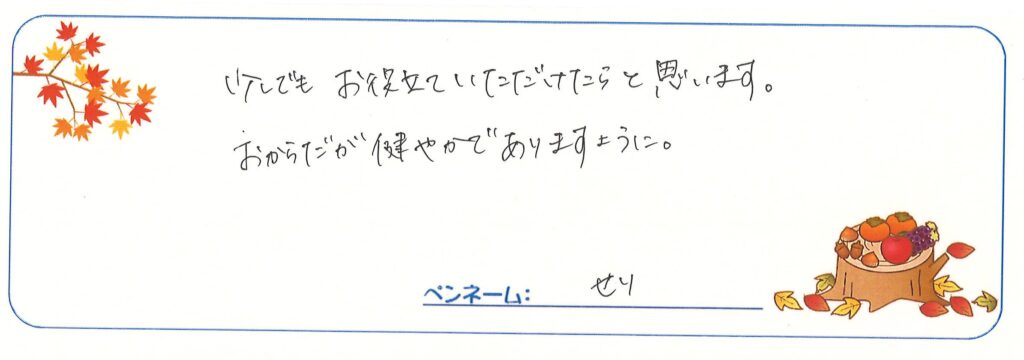 少しでも お役立ていただけたらと思います。
おからだが健やかでありますように。
ペンネーム: せり